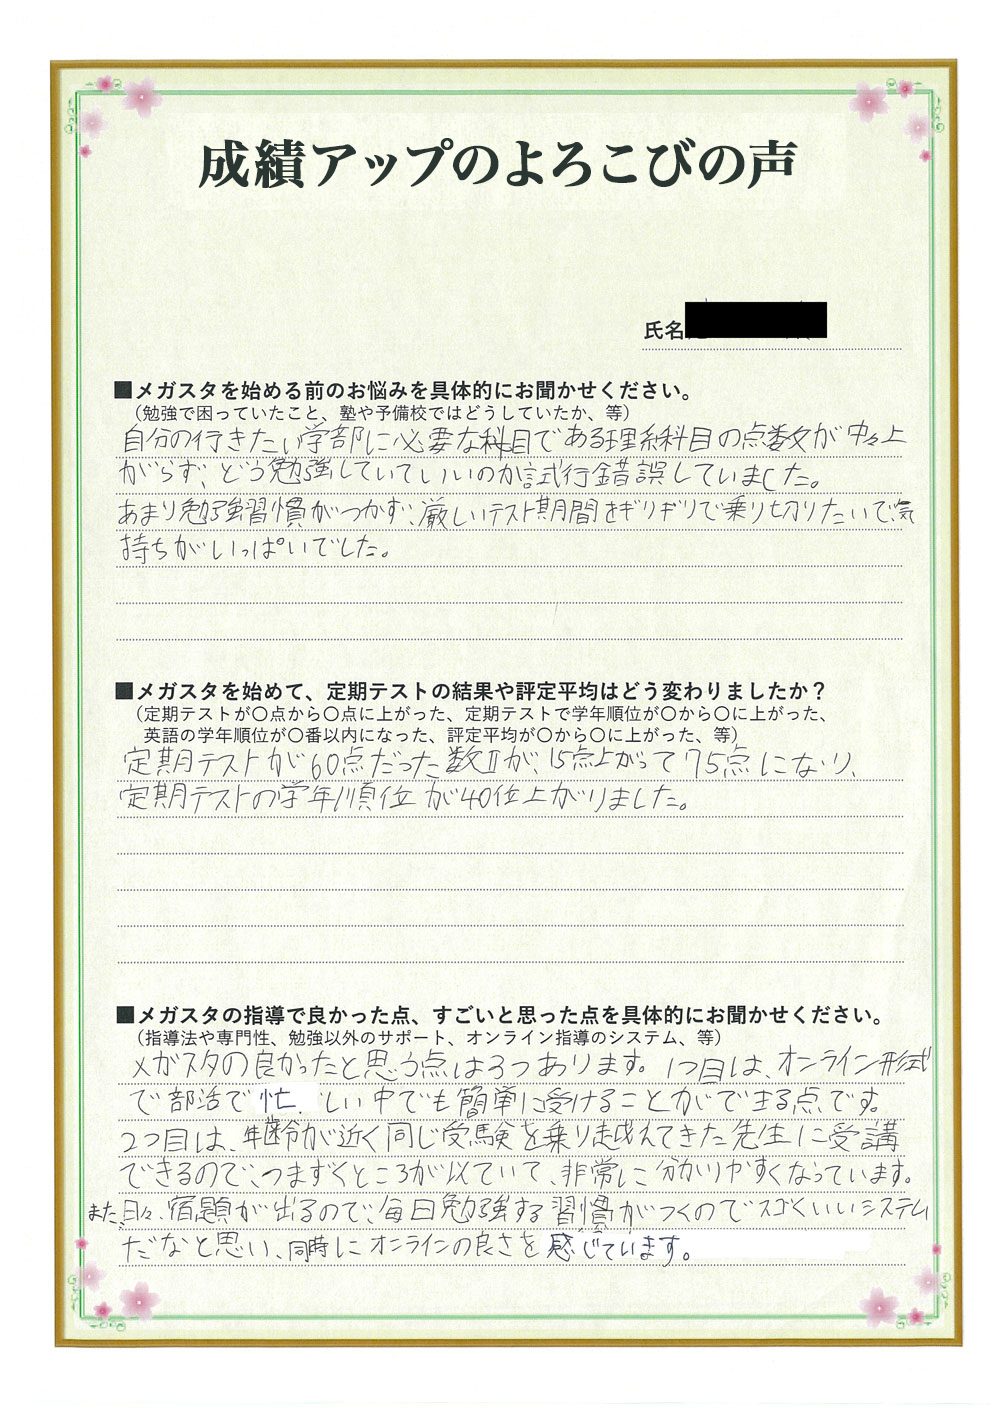 成績アップのよろこびの声
氏名
■メガスタを始める前のお悩みを具体的にお聞かせください。
(勉強で困っていたこと、塾や予備校ではどうしていたか、等)
自分の行きたい学部に必要な科目である理系科目の点数が中々上
がらず、どう勉強していていいのか試行錯誤していました。
あまり勉強習慣がつかず、厳しいテスト期間をギリギリで乗り切りたいで気
持ちがいっぱいでした。
■メガスタを始めて、定期テストの結果や評定平均はどう変わりましたか?
(定期テストが〇点から〇点に上がった、定期テストで学年順位が〇から〇に上がった、
英語の学年順位が〇番以内になった、評定平均が〇から〇に上がった、等)
定期テストが60点だった数Ⅱが、15点上がって75点になり、
定期テストの学年順位が40位上がりました。
■メガスタの指導で良かった点、すごいと思った点を具体的にお聞かせください。
(指導法や専門性、勉強以外のサポート、オンライン指導のシステム、等)
メガスタの良かったと思う点は3つあります。1つ目は、オンライン形式
で部活で忙しい中でも簡単に受けることができる点です。
2つ目は、年齢が近く同じ受験を乗り越えてきた先生に受講
できるので、つまずくところが似ていて、非常に分かりやすくなっています。
また、日々、宿題が出るので、毎日勉強する習慣がつくのでスゴくいいシステム
だなと思い、同時にオンラインの良さを感じています。